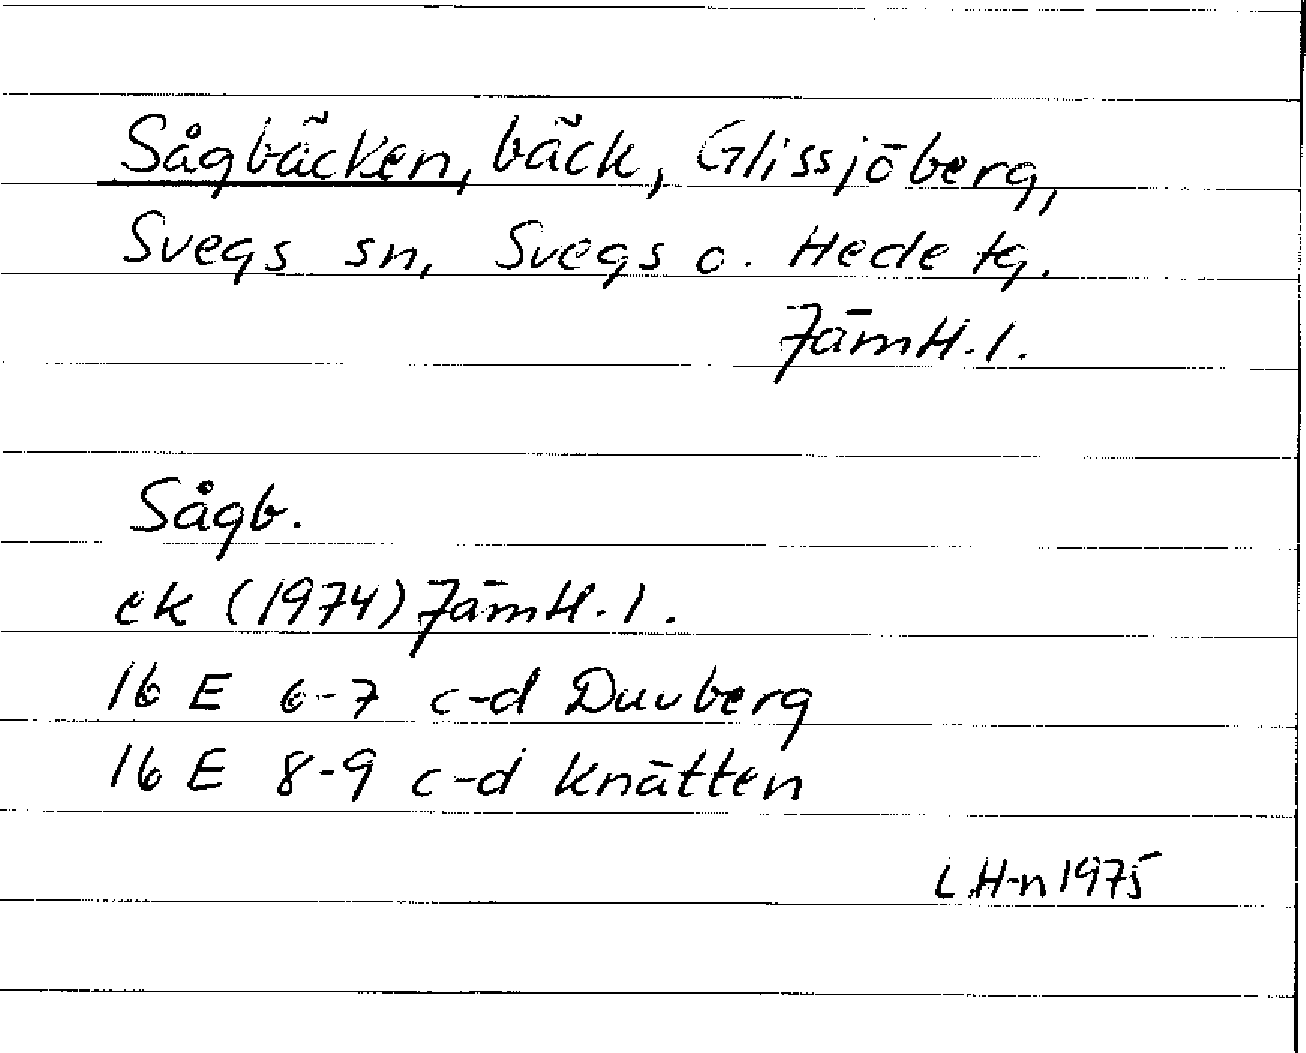 Sågbäcken, bäck, Glissjöberg,
Svegs sn, Svegs o. Hede tg.
Jämtl. l.
Sågb.
ek (1974) Jämtl. l.
16 E 6-7 c-d Duvberg
16 E 8-9 c-d Knätten
L H-n 1975